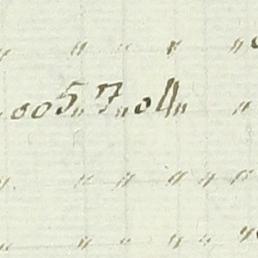 " " " " "
005 " 7 " 04 " "
" " " " " "
" " " " " "